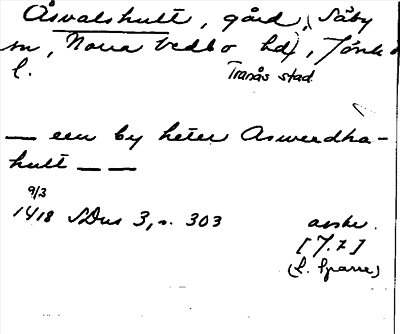 Åsvalshult, gård, Säby
sn, Norra Vedbo hd, Jönk
l.
Tranås stad
— een by heter Aswerdha-
hult — —
9/3
1418 SDns 3, s. 303
avskr.
(L. Sparre)